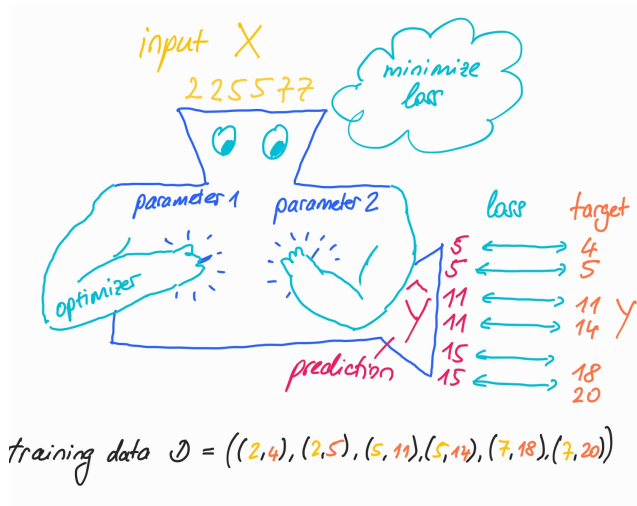 input X
2 2 5 5 7 7
minimize
loss
parameter 1
parameter 2
optimizer
loss
target
5
5
11
11
15
15
4
5
11
14
18
20
Ŷ
Y
prediction
training data D = ((2,4), (2,5), (5,11), (5,14), (7,18), (7,20))